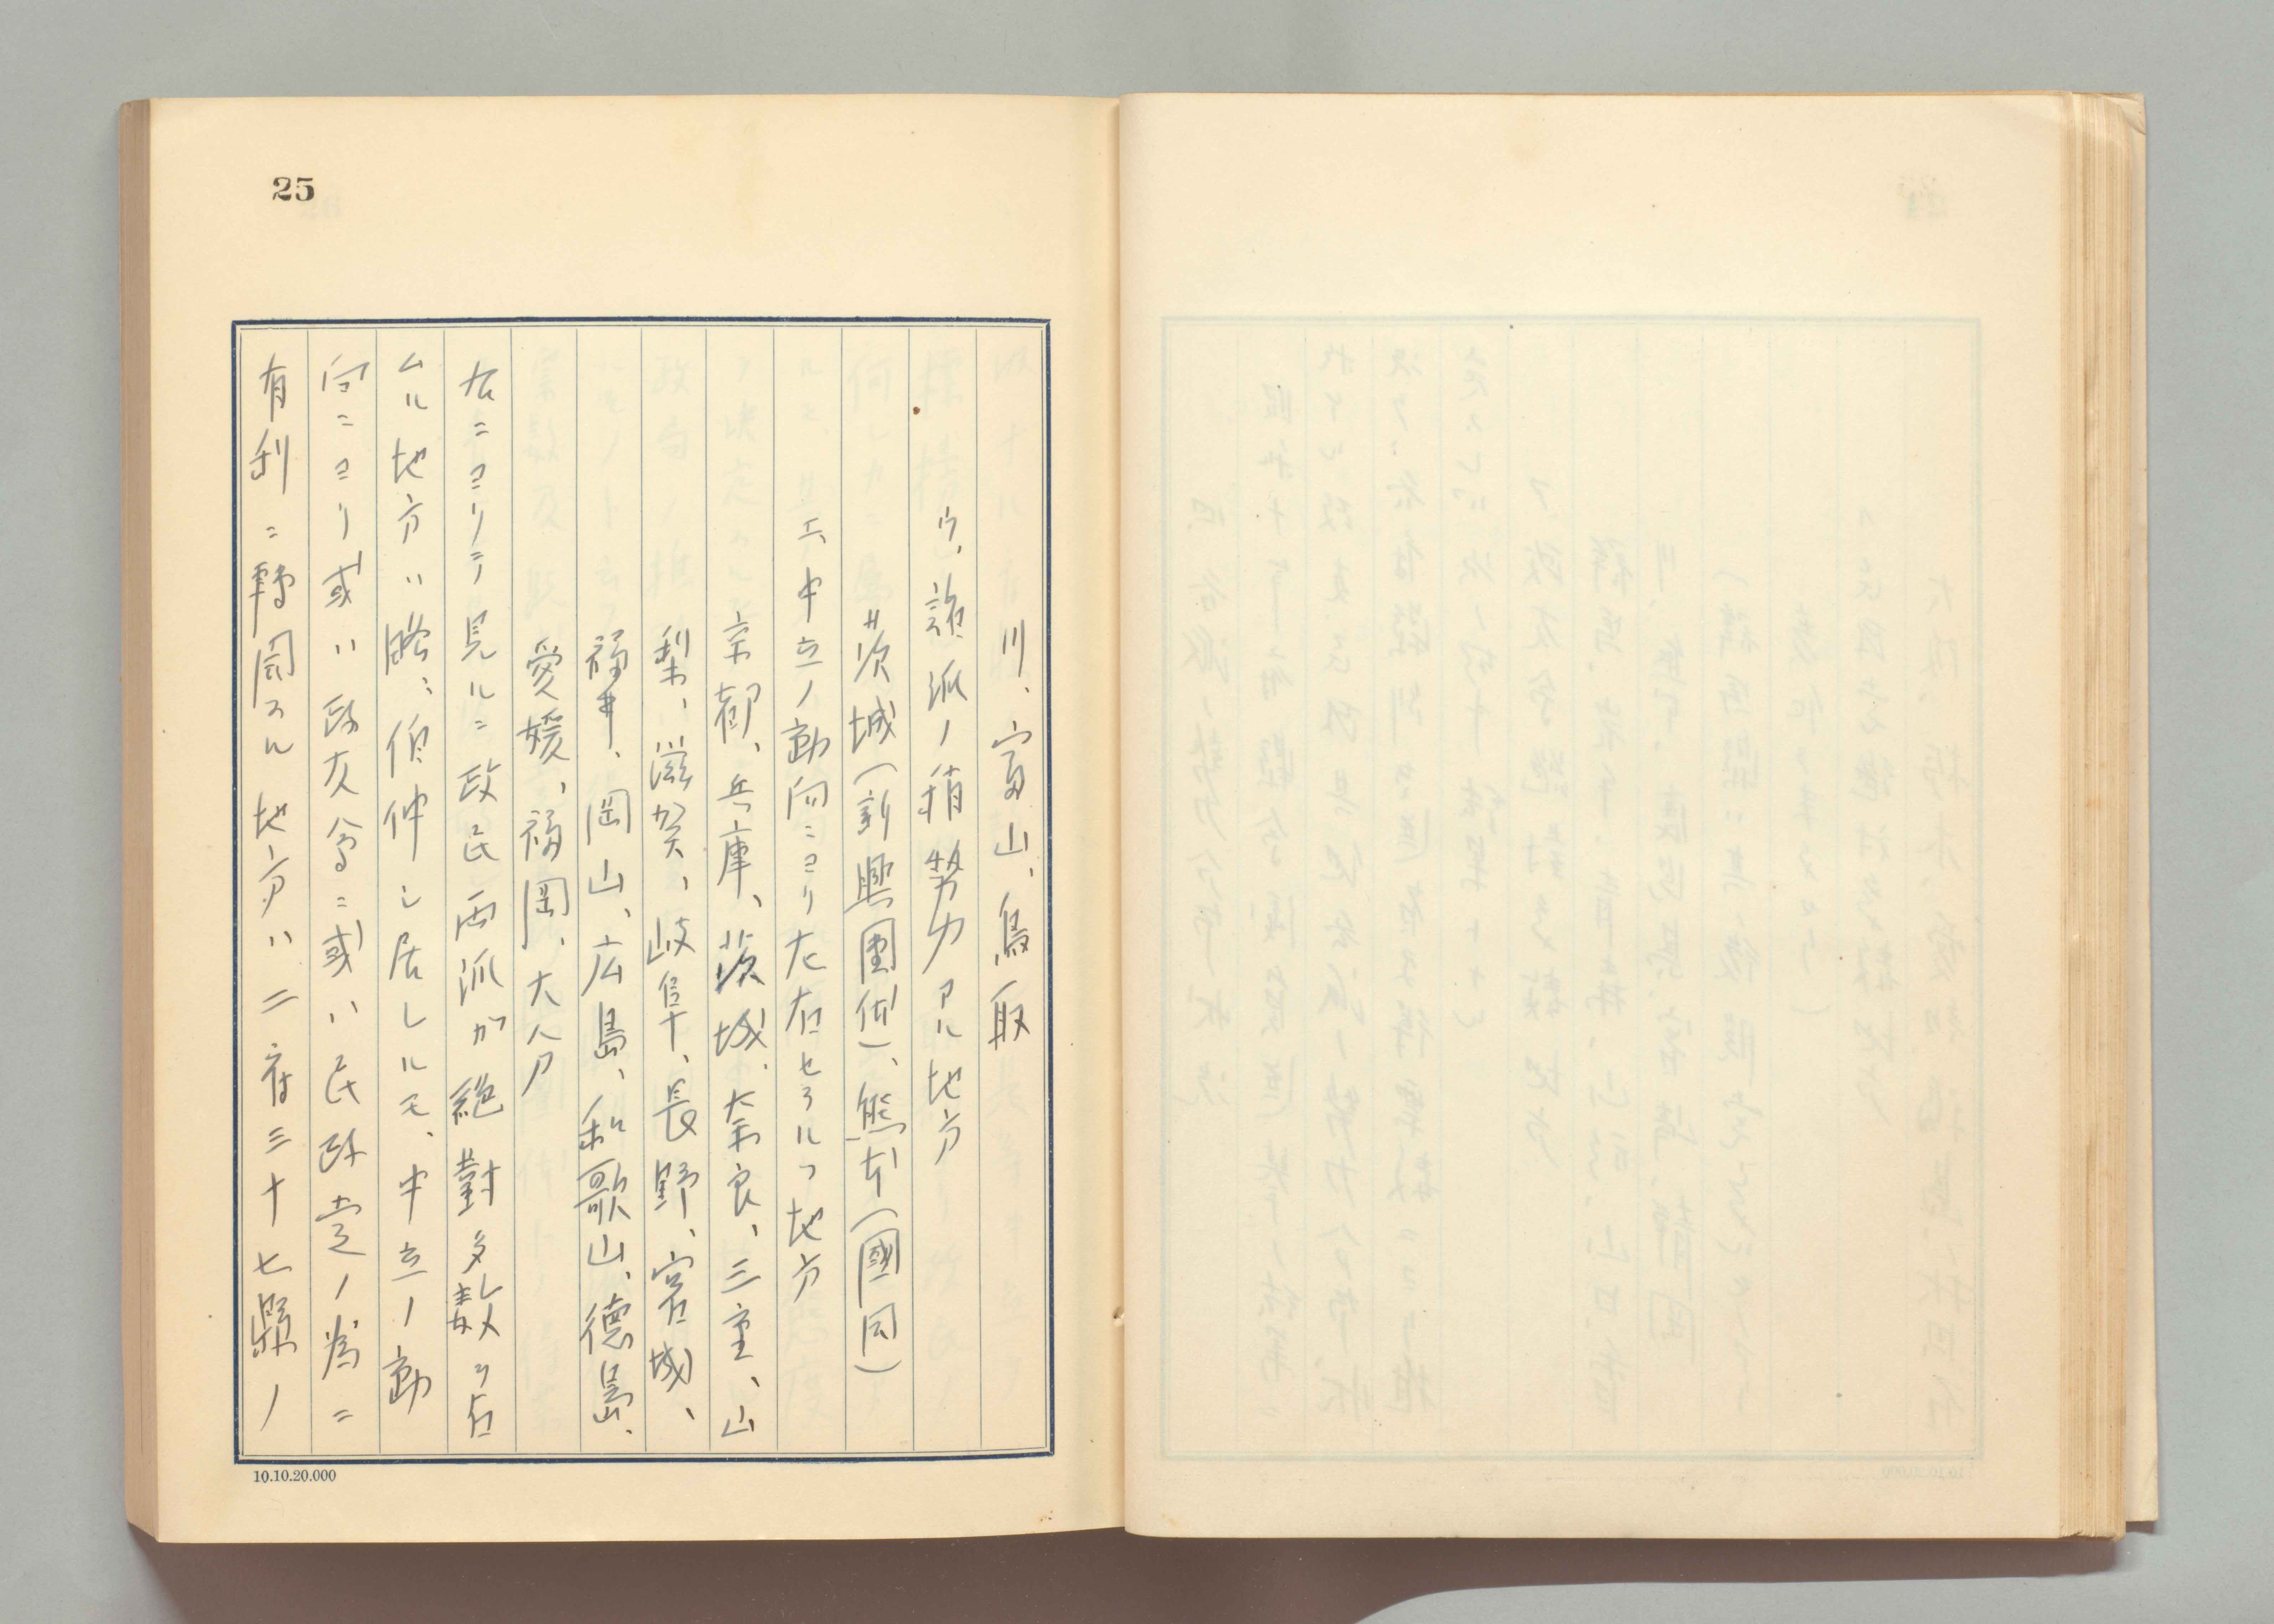 25
川、富山、鳥取
ウ、諸派ノ稍勢力アル地方
茨城(新興団体)、熊本(國同)
エ、中立ノ動向ニヨリ左右セラルヽ地方
京都、兵庫、茨城、奈良、三重、山
梨、滋賀、岐阜、長野、宮城、
福井、岡山、広島、和歌山、徳島、
愛媛、福岡、大分
右ニヨリテ見ルニ政民両派ガ絶對多数ヲ占
ムル地方ハ略〻伯仲シ居レルモ、中立ノ動
向ニヨリ或ハ政友會ニ或ハ民政党ノ為ニ
有利ニ轉囘スル地方ハ二府三十七縣ノ
10.10.20.000